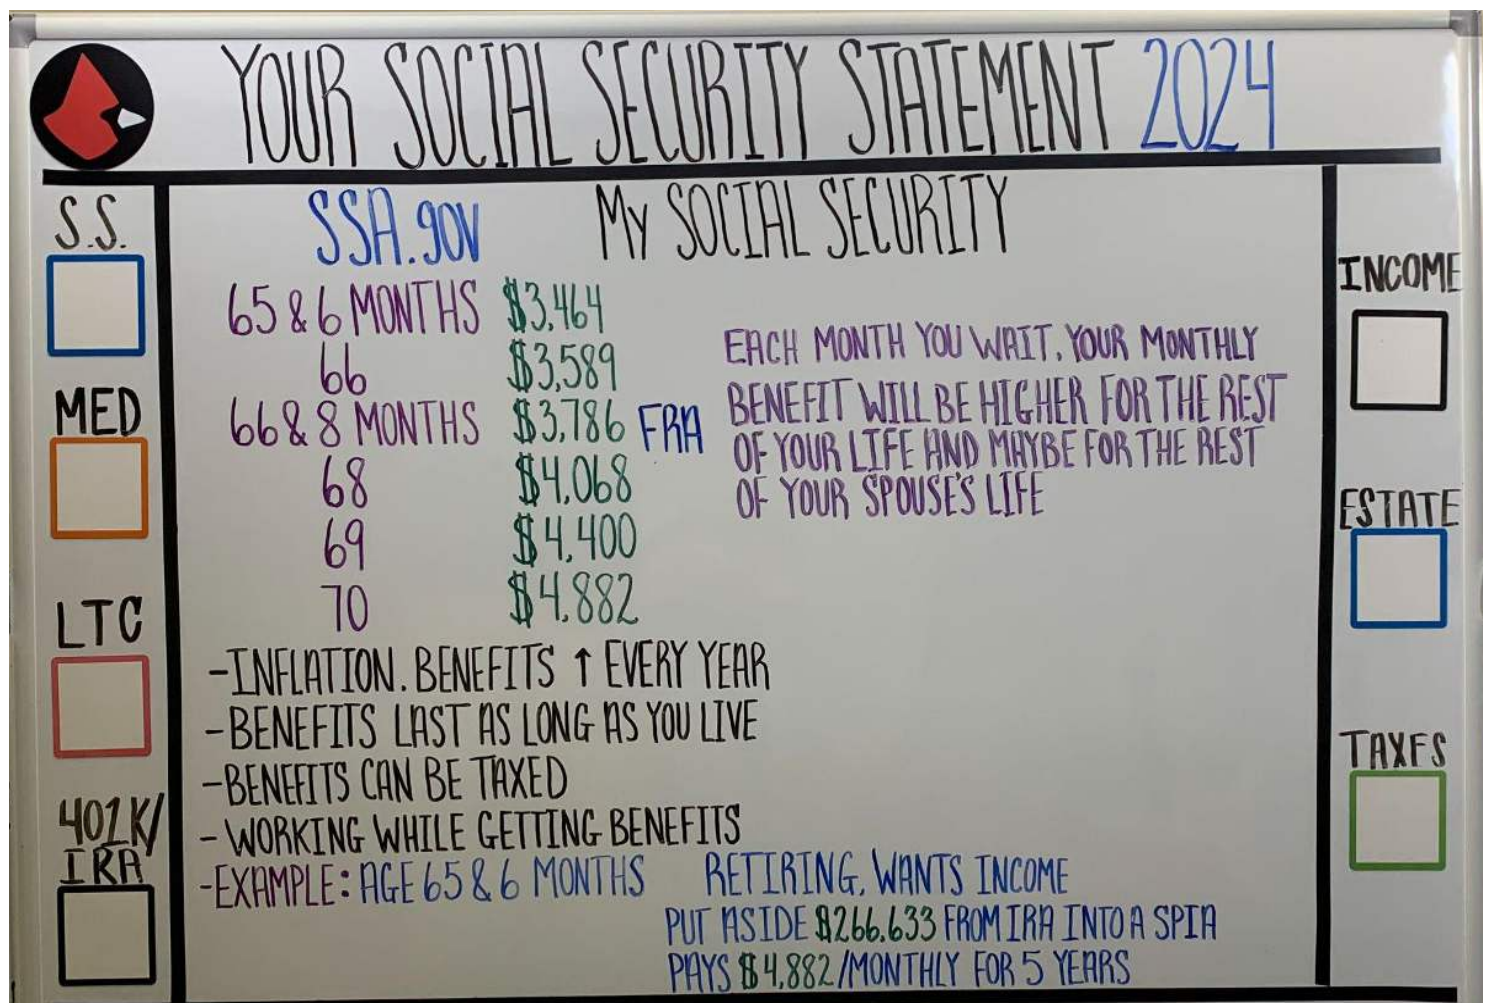 YOUR SOCIAL SECURITY STATEMENT 2024
S.S.
MED
LTC
401K/
IRA
SSA.gov MY SOCIAL SECURITY
65 & 6 MONTHS $3,464
66 $3,589
66 & 8 MONTHS $3,786 FRA
68 $4,068
69 $4,400
70 $4,882
EACH MONTH YOU WAIT, YOUR MONTHLY
BENEFIT WILL BE HIGHER FOR THE REST
OF YOUR LIFE AND MAYBE FOR THE REST
OF YOUR SPOUSE'S LIFE
-INFLATION. BENEFITS ↑ EVERY YEAR
-BENEFITS LAST AS LONG AS YOU LIVE
-BENEFITS CAN BE TAXED
- WORKING WHILE GETTING BENEFITS
-EXAMPLE: AGE 65 & 6 MONTHS RETIRING, WANTS INCOME
PUT ASIDE $266,633 FROM IRA INTO A SPIA
PAYS $4,882/MONTHLY FOR 5 YEARS
INCOME
ESTATE
TAXES